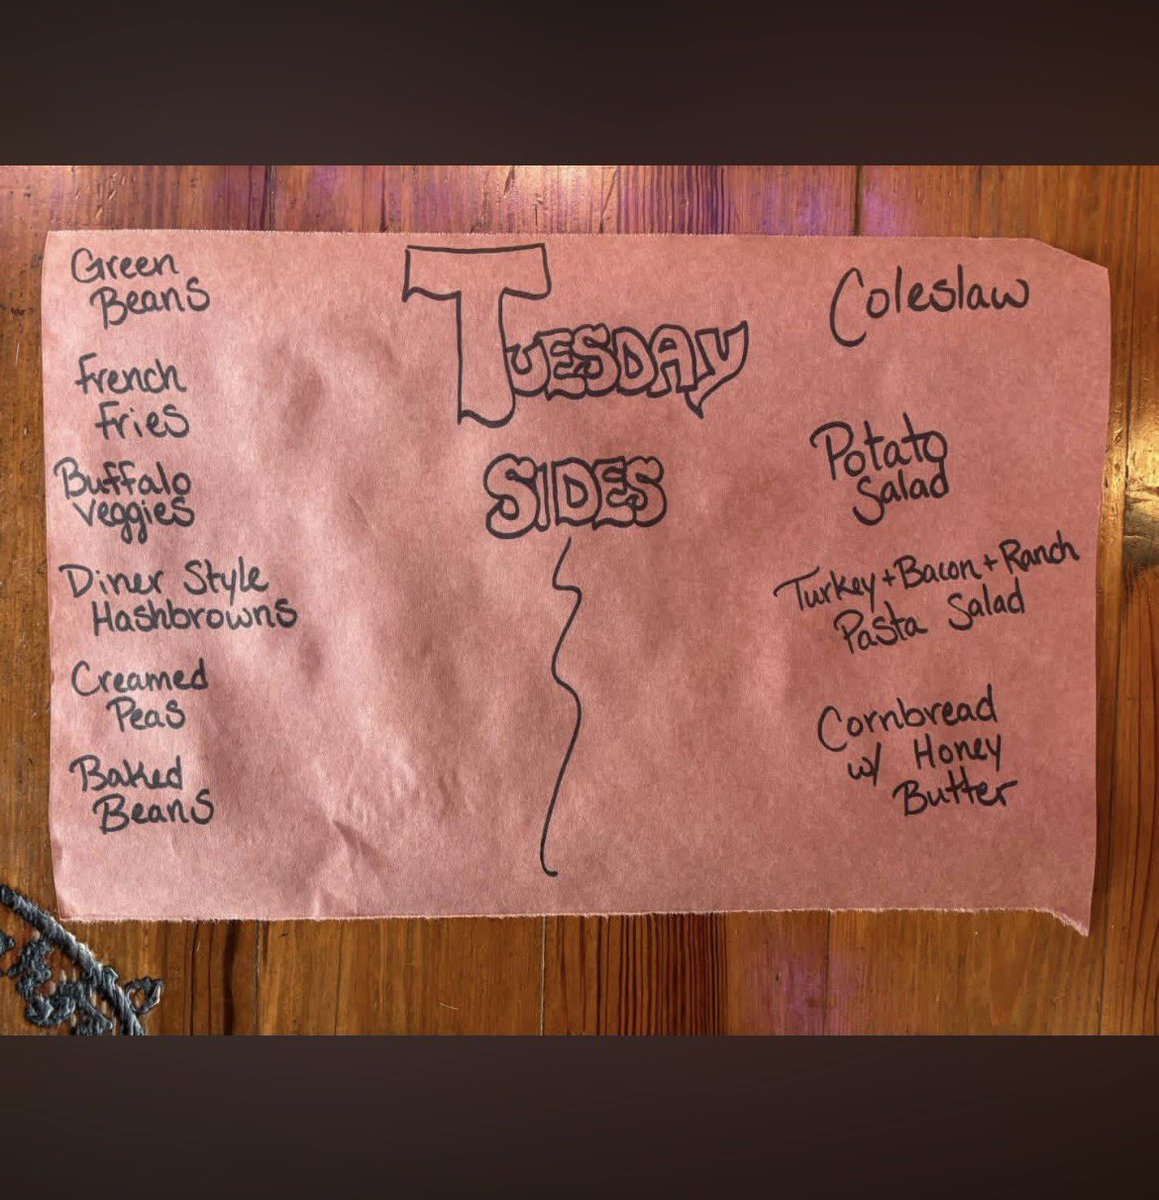 Tuesday
Sides
Green
Beans
French
Fries
Buffalo
Veggies
Diner Style
Hashbrowns
Creamed
Peas
Baked
Beans
Coleslaw
Potato
Salad
Turkey + Bacon + Ranch
Pasta Salad
Cornbread
w/ Honey
Butter